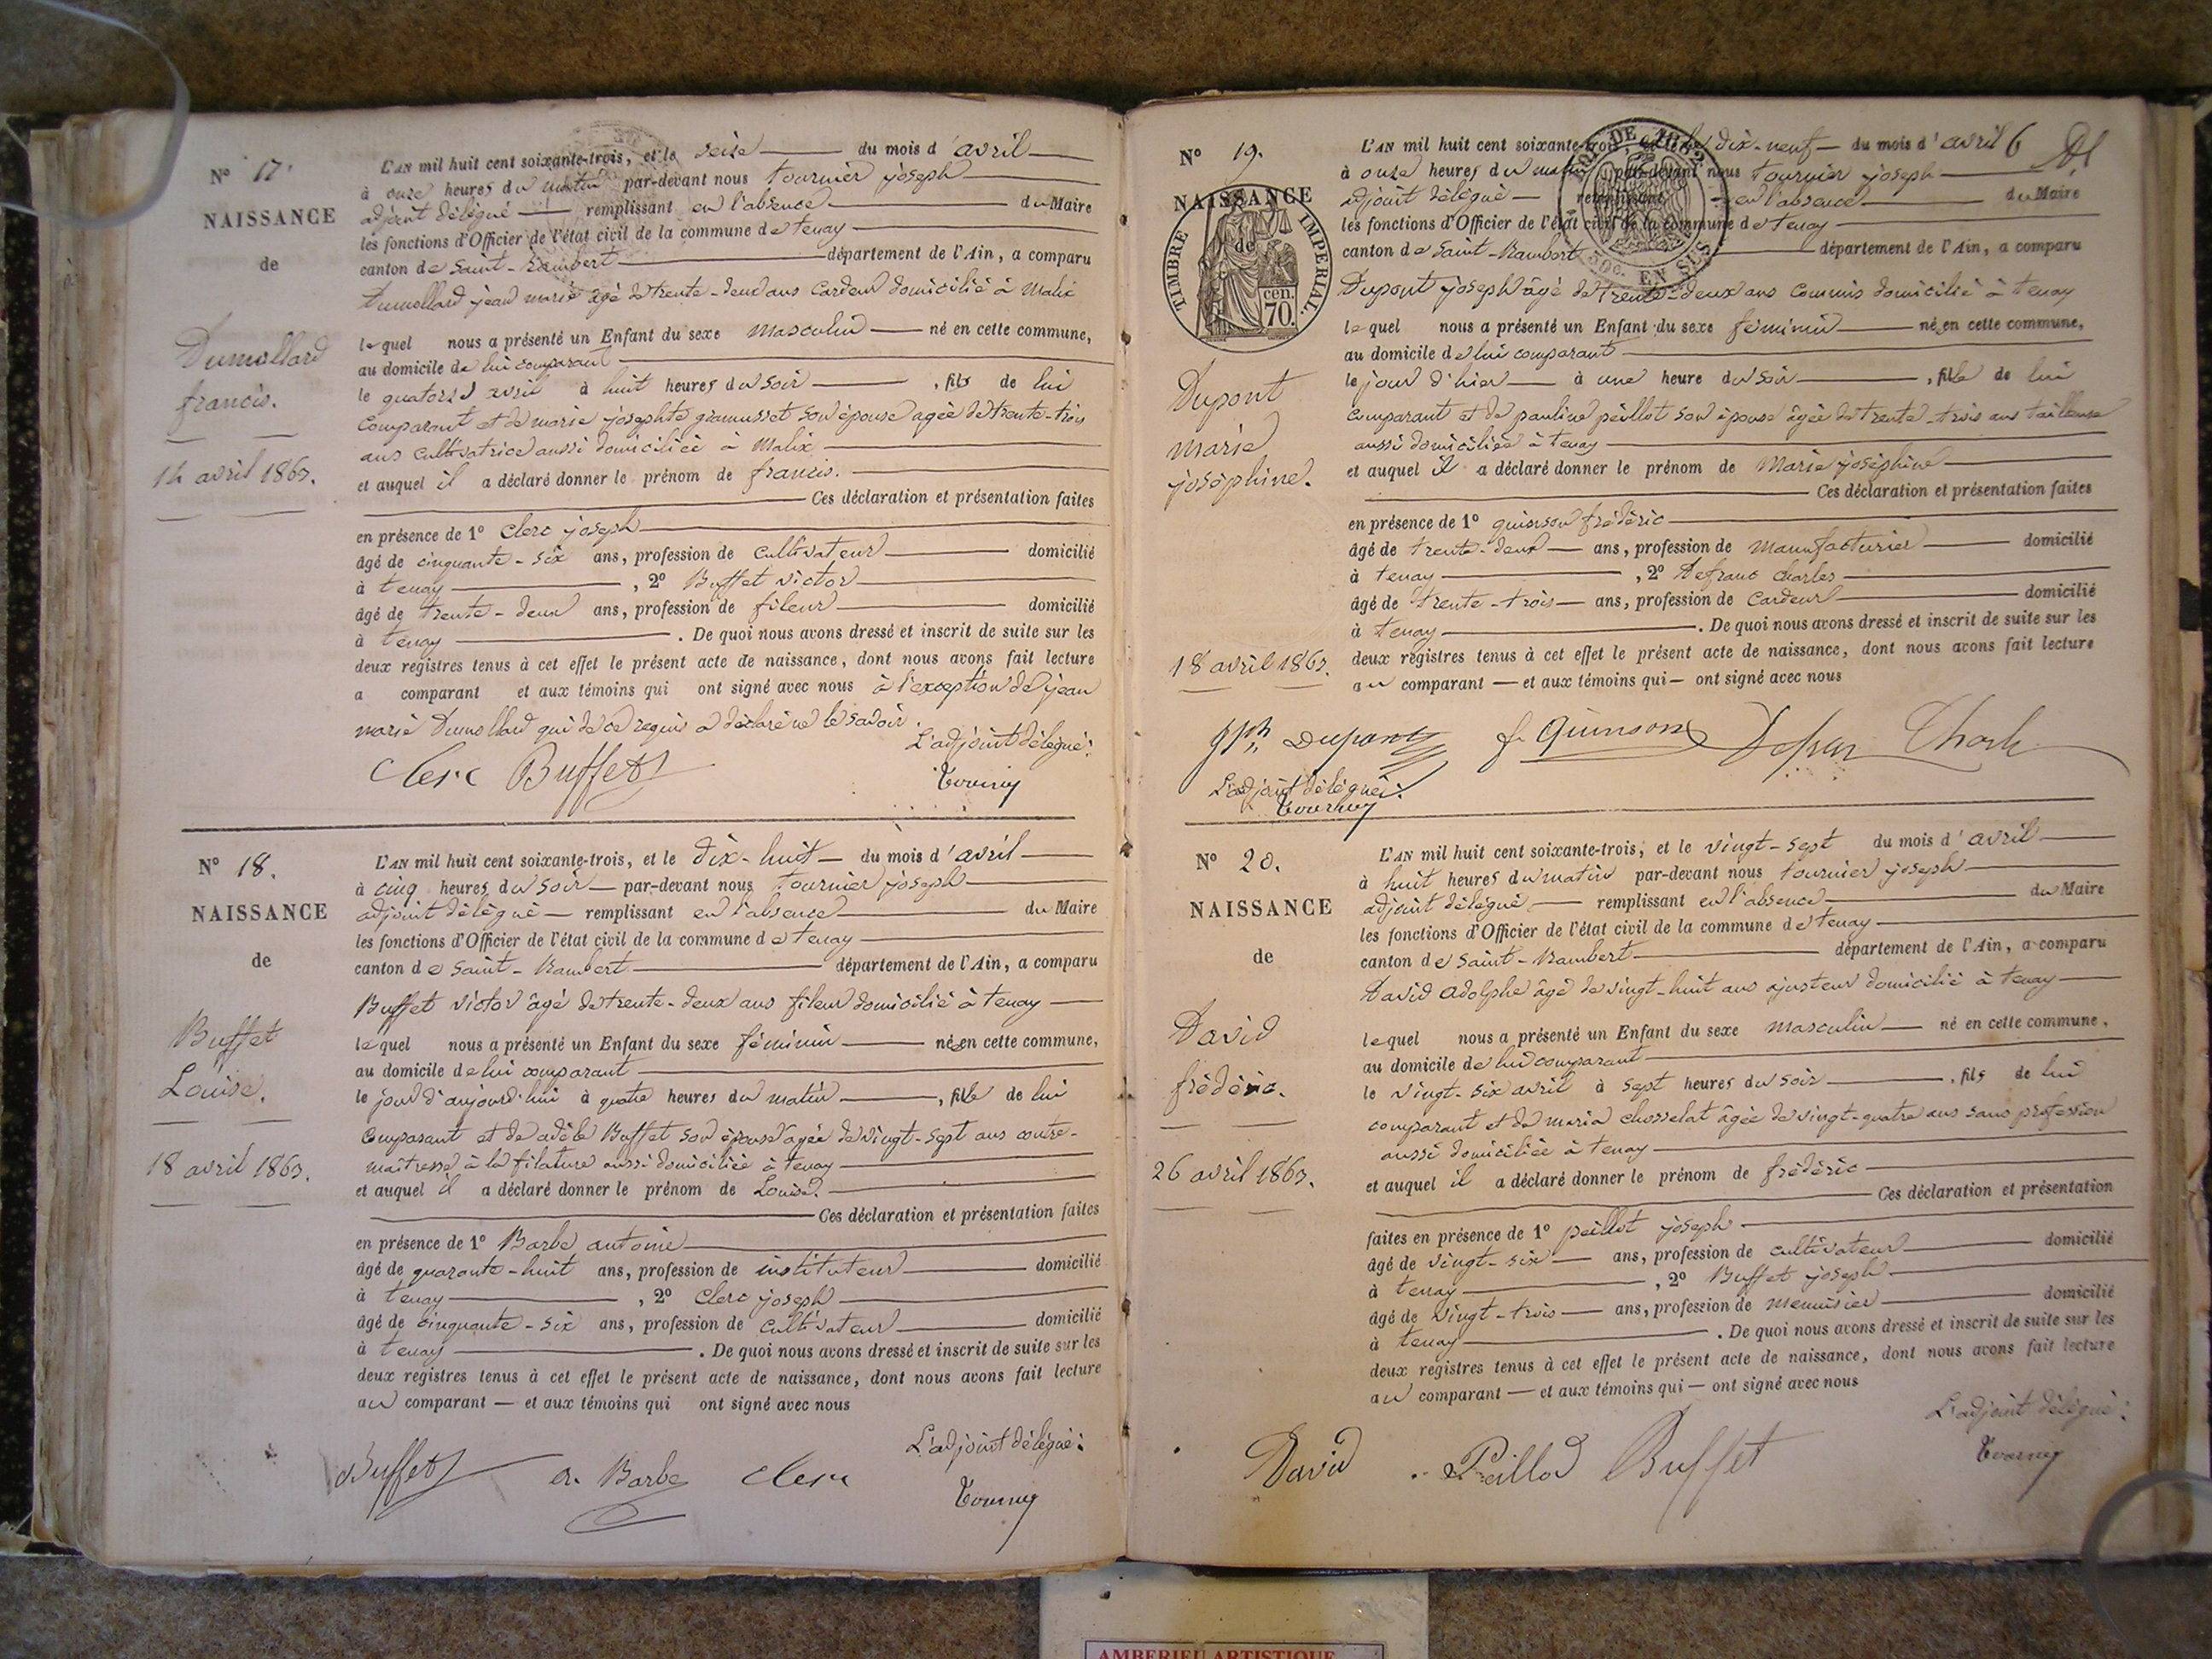 N° 17.
NAISSANCE
de
Dumollard
francis.
14 avril 1863.
L'AN mil huit cent soixante-trois, et le seize du mois d'avril
à onze heures du matin par-devant nous tournier joseph
adjoint délégué remplissant en l'absence du Maire
les fonctions d'Officier de l'état civil de la commune de tenay
canton de saint-Rambert département de l'Ain, a comparu
Dumollard jean marie âgé de trente-deux ans Cardeur domicilié à Malix
lequel nous a présenté un Enfant du sexe masculin né en cette commune,
au domicile de lui comparant
le quatorze avril à huit heures du soir, fils de lui
comparant et de marie josephte gramusset son épouse agée de trente-trois
ans cultivatrice aussi domiciliée à Malix
et auquel il a déclaré donner le prénom de francis.
Ces déclaration et présentation faites
en présence de 1° Clerc joseph
âgé de cinquante-six ans, profession de cultivateur domicilié
à tenay, 2° Buffet victor
âgé de trente-deux ans, profession de fileur domicilié
à tenay. De quoi nous avons dressé et inscrit de suite sur les
deux registres tenus à cet effet le présent acte de naissance, dont nous avons fait lecture
a comparant et aux témoins qui ont signé avec nous à l'exception de jean
marie Dumollard qui de ce requis a déclaré ne le savoir.
L'adjoint délégué:
Clerc Buffet
Tournier
N° 18.
NAISSANCE
de
Buffet
Louise.
18 avril 1863.
L'AN mil huit cent soixante-trois, et le dix-huit du mois d'avril
à cinq heures du soir par-devant nous tournier joseph
adjoint délégué remplissant en l'absence du Maire
les fonctions d'Officier de l'état civil de la commune de tenay
canton de saint-Rambert département de l'Ain, a comparu
Buffet victor âgé de trente-deux ans fileur domicilié à tenay
lequel nous a présenté un Enfant du sexe féminin née en cette commune,
au domicile de lui comparant
le jour d'aujourd'hui à quatre heures du matin, fille de lui
comparant et de adèle Buffet son épouse agée de vingt-sept ans contre-
maîtresse à la filature aussi domiciliée à tenay
et auquel il a déclaré donner le prénom de Louise.
Ces déclaration et présentation faites
en présence de 1° Barbe antoine
âgé de quarante-huit ans, profession de instituteur domicilié
à tenay, 2° Clerc joseph
âgé de cinquante-six ans, profession de cultivateur domicilié
à tenay. De quoi nous avons dressé et inscrit de suite sur les
deux registres tenus à cet effet le présent acte de naissance, dont nous avons fait lecture
au comparant — et aux témoins qui ont signé avec nous
L'adjoint délégué:
Buffet a. Barbe Clerc
Tournier
N° 19.
NAISSANCE
de
TIMBRE IMPERIAL.
cen. 70.
Dupont
marie
joséphine.
18 avril 1863.
L'AN mil huit cent soixante-trois, et le dix-neuf du mois d'avril 6
à onze heures du matin par-devant nous tournier joseph
adjoint délégué remplissant en l'absence du Maire
les fonctions d'Officier de l'état civil de la commune de tenay
EN SUS
canton de saint-Rambert département de l'Ain, a comparu
Dupont joseph âgé de trente-deux ans commis domicilié à tenay
lequel nous a présenté un Enfant du sexe féminin née en cette commune,
au domicile de lui comparant
le jour d'hier à une heure du soir, fille de lui
comparant et de pauline peillot son épouse âgée de trente-trois ans tailleuse
aussi domiciliée à tenay
et auquel il a déclaré donner le prénom de Marie joséphine
Ces déclaration et présentation faites
en présence de 1° quinson frédéric
âgé de trente-deux ans, profession de Manufacturier domicilié
à tenay, 2° Defranc Charles
âgé de trente-trois ans, profession de Cardeur domicilié
à tenay. De quoi nous avons dressé et inscrit de suite sur les
deux registres tenus à cet effet le présent acte de naissance, dont nous avons fait lecture
au comparant — et aux témoins qui — ont signé avec nous
Jph Dupont f. Quinson
L'adjoint délégué:
Tournier
N° 20.
NAISSANCE
de
David
frédéric.
26 avril 1863.
L'AN mil huit cent soixante-trois, et le vingt-sept du mois d'avril
à huit heures du matin par-devant nous tournier joseph
adjoint délégué remplissant en l'absence du Maire
les fonctions d'Officier de l'état civil de la commune de tenay
canton de saint-Rambert département de l'Ain, a comparu
David adolphe âgé de vingt-huit ans ajusteur domicilié à tenay
lequel nous a présenté un Enfant du sexe masculin né en cette commune,
au domicile de lui comparant
le vingt-six avril à sept heures du soir, fils de lui
comparant et de maria chosselat âgée de vingt-quatre ans sans profession
aussi domiciliée à tenay
et auquel il a déclaré donner le prénom de frédéric
Ces déclaration et présentation
faites en présence de 1° peillot joseph
âgé de vingt-six ans, profession de cultivateur domicilié
à tenay, 2° Buffet joseph
âgé de vingt-trois ans, profession de menuisier domicilié
à tenay. De quoi nous avons dressé et inscrit de suite sur les
deux registres tenus à cet effet le présent acte de naissance, dont nous avons fait lecture
au comparant — et aux témoins qui — ont signé avec nous
L'adjoint délégué:
David Peillod Buffet
Tournier
AMBERIEU ARTISTIQUE